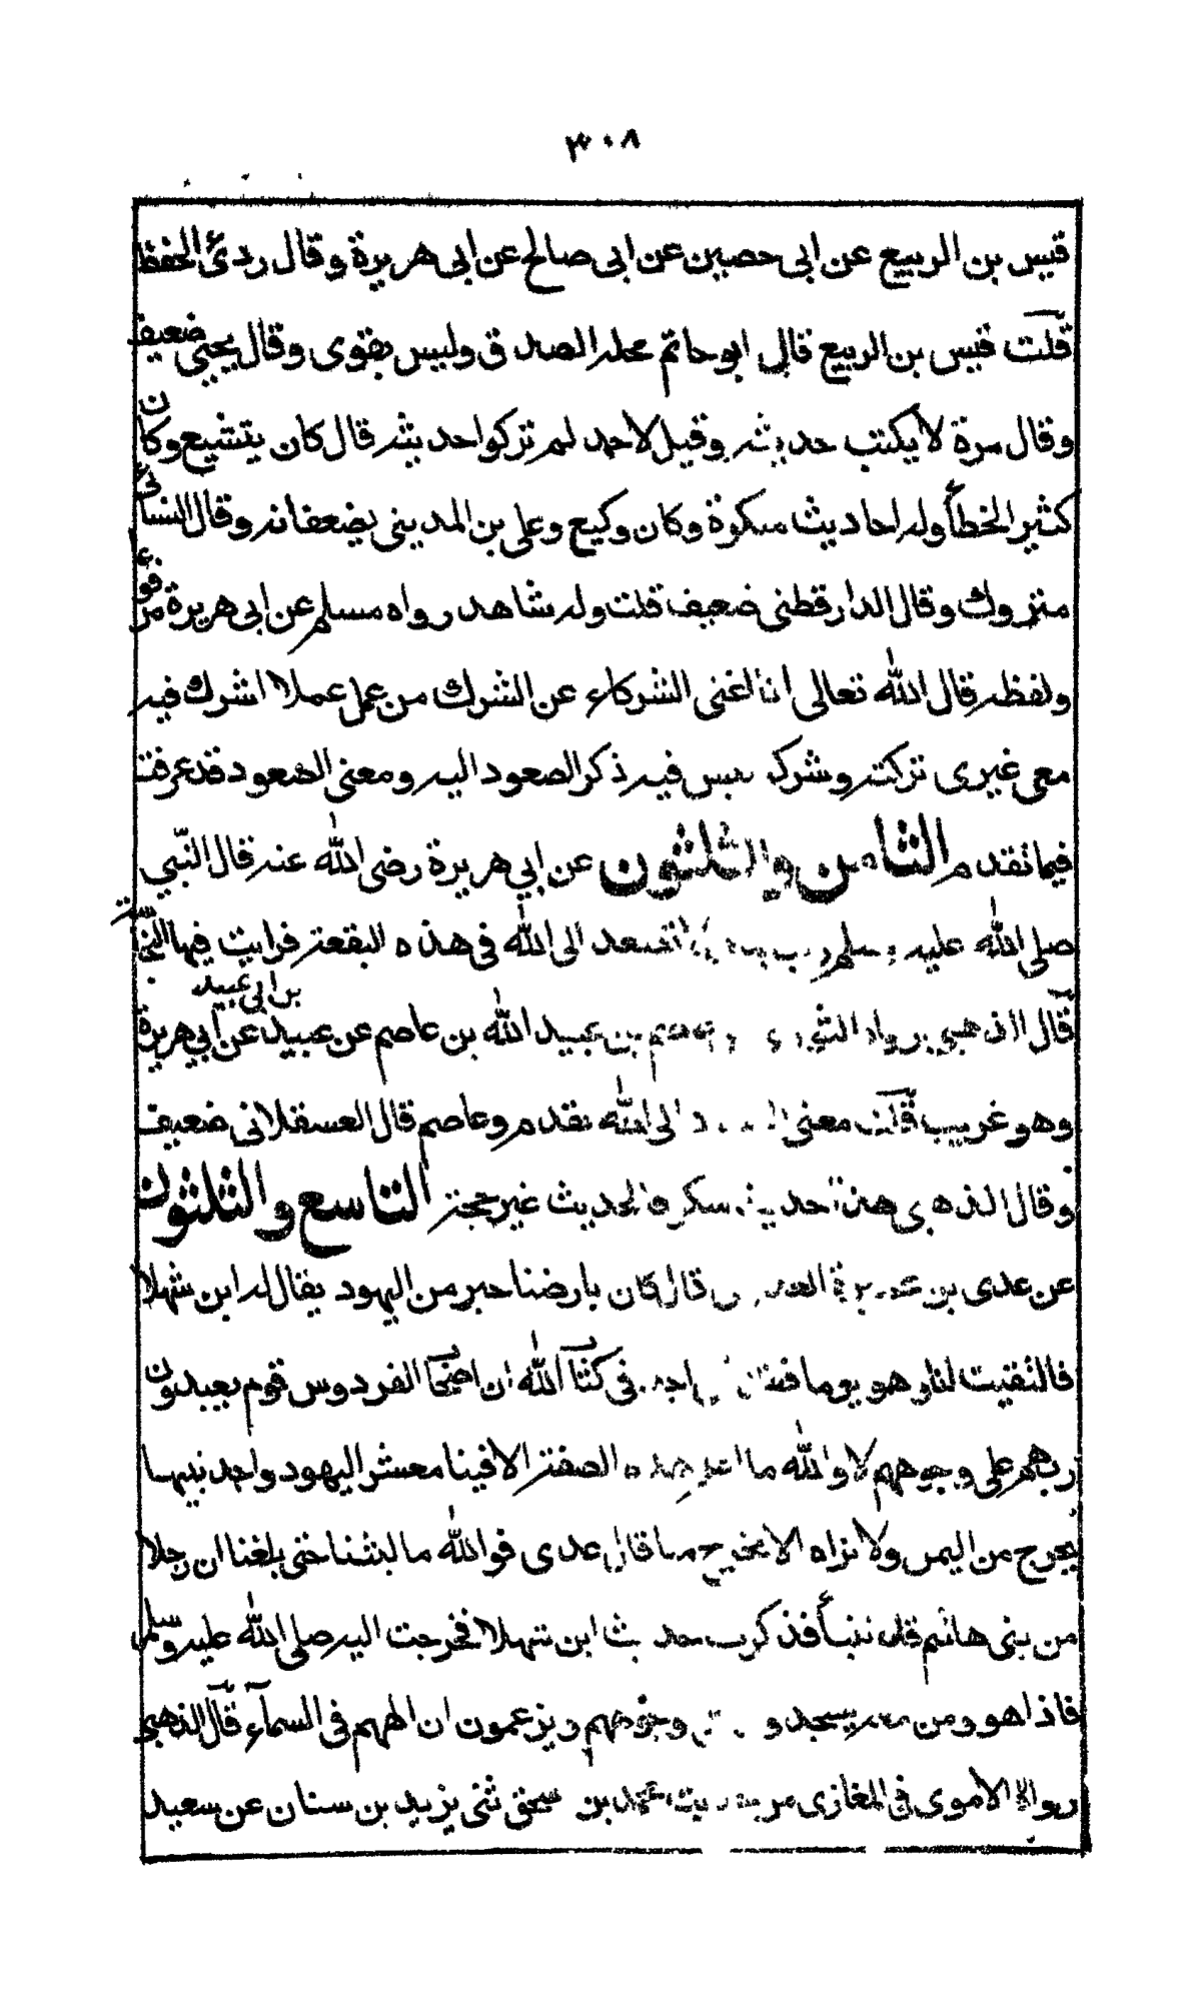 ٣٠٨
قيس بن الربيع عن ابى حصين عن ابى صالح عن ابى هريرة وقال ردئ الحفظ
قلت قيس بن الربيع قال ابو حاتم محله الصدق وليس بقوى وقال يحيى ضعيف
وقال مرة لا يكتب حديثه وقيل لاحمد لم تركوا حديثه قال كان يتشيع وكان
كثير الخطأ وله احاديث منكرة وكان وكيع وعلى بن المدينى يضعفانه وقال النسائى
متروك وقال الدارقطنى ضعيف قلت وله شاهد رواه مسلم عن ابى هريرة مرفوع
ولفظه قال الله تعالى انا اغنى الشركاء عن الشرك من عمل عملا اشرك فيه
معى غيرى تركته وشركه ليس فيه ذكر الصعود اليه ومعنى الصعود قد عرفت
فيما تقدم الثامن والثلثون عن ابى هريرة رضى الله عنه قال النبى
صلى الله عليه وسلم تصعد الى الله فى هذه البقعة فرايت فيها النخاسة
قال الذهبى عاصم بن عبيد الله بن عاصم عن عبيد بن ابى عبيد عن ابى هريرة
وهو غريب قلت معنى الى الله تقدم وعاصم قال العسقلانى ضعيف
وقال الذهبى هذا حديث منكر والحديث غير حجة التاسع والثلثون
عن عدى بن عميرة قال كان بارضنا حبر من اليهود يقال له ابن شهلا
فالتقيت انا وهو يوما فقال فى كتاب الله ان اصحاب الفردوس قوم يعبدون
ربهم على وجوههم لا والله ما اعلم هذه الصفة الا فينا معشر اليهود واجد نبيها
يخرج من اليمن ولا نراه الا يخرج منا قال عدى فوالله ما لبثنا حتى بلغنا ان رجلا
من بنى هاشم قد تنبأ فذكرت حديث ابن شهلا فخرجت اليه صلى الله عليه وسلم
فاذا هو ومن معه يسجد وجوههم ويزعمون ان الههم فى السماء قال الذهبى
رواه الاموى فى المغازى من حديث محمد بن سحق ثنى يزيد بن سنان عن سعيد